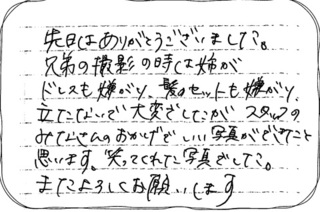 先日はありがとうございました。
兄弟の撮影の時は姉が
ドレスも嫌がり、髪のセットも嫌がり、
立たないで大変でしたが スタッフの
みなさんのおかげで いい写真ができたと
思います。笑ってくれた写真でした。
またよろしくお願いします